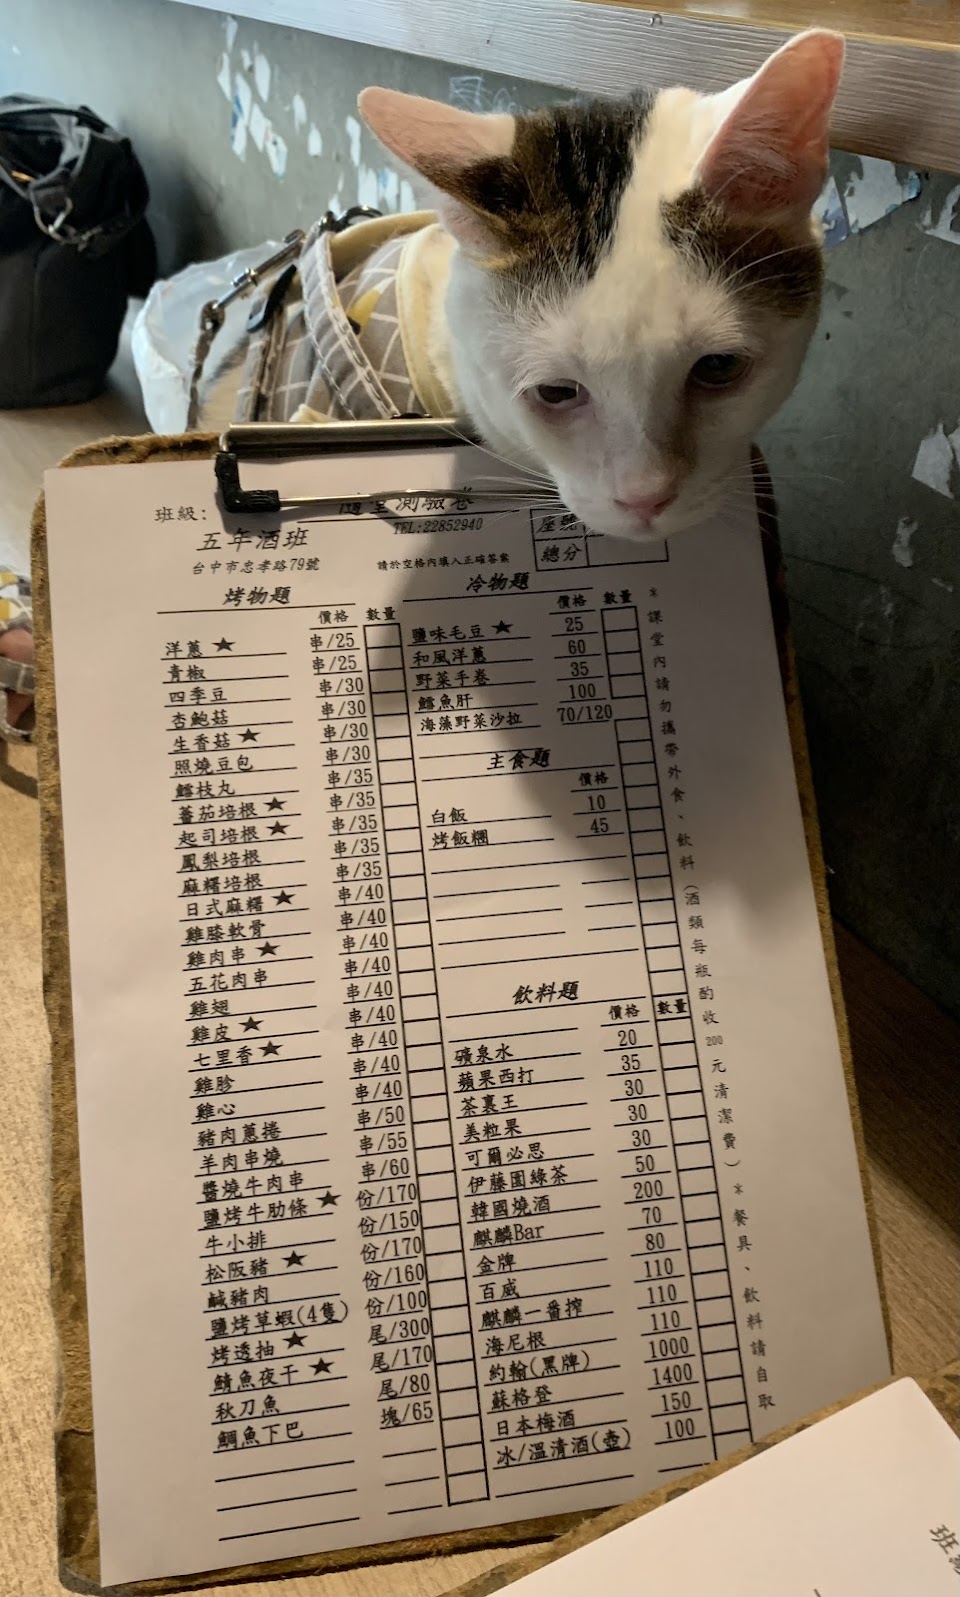 班級:
隨堂測驗卷
五年酒班
TEL:22852940
座號
台中市忠孝路79號
請於空格內填入正確答案
總分
烤物題
價格 數量
洋蔥★ 串/25
青椒 串/25
四季豆 串/30
杏鮑菇 串/30
生香菇★ 串/30
照燒豆包 串/30
鱈枝丸 串/35
蕃茄培根★ 串/35
起司培根★ 串/35
鳳梨培根 串/35
麻糬培根 串/35
日式麻糬★ 串/40
雞膝軟骨 串/40
雞肉串★ 串/40
五花肉串 串/40
雞翅 串/40
雞皮★ 串/40
七里香★ 串/40
雞胗 串/40
雞心 串/40
豬肉蔥捲 串/50
羊肉串燒 串/55
醬燒牛肉串 串/60
鹽烤牛肋條★ 份/170
牛小排 份/150
松阪豬★ 份/170
鹹豬肉 份/160
鹽烤草蝦(4隻) 份/100
烤透抽★ 尾/300
鯖魚夜干★ 尾/170
秋刀魚 尾/80
鯛魚下巴 塊/65
冷物題
價格 數量
鹽味毛豆★ 25
和風洋蔥 60
野菜手卷 35
鱈魚肝 100
海藻野菜沙拉 70/120
主食題
價格
白飯 10
烤飯糰 45
飲料題
價格 數量
礦泉水 20
蘋果西打 35
茶裏王 30
美粒果 30
可爾必思 30
伊藤園綠茶 50
韓國燒酒 200
麒麟Bar 70
金牌 80
百威 110
麒麟一番搾 110
海尼根 110
約翰(黑牌) 1000
蘇格登 1400
日本梅酒 150
冰/溫清酒(壺) 100
*課堂內請勿攜帶外食、飲料(酒類每瓶酌收200元清潔費)*餐具、飲料請自取
班級